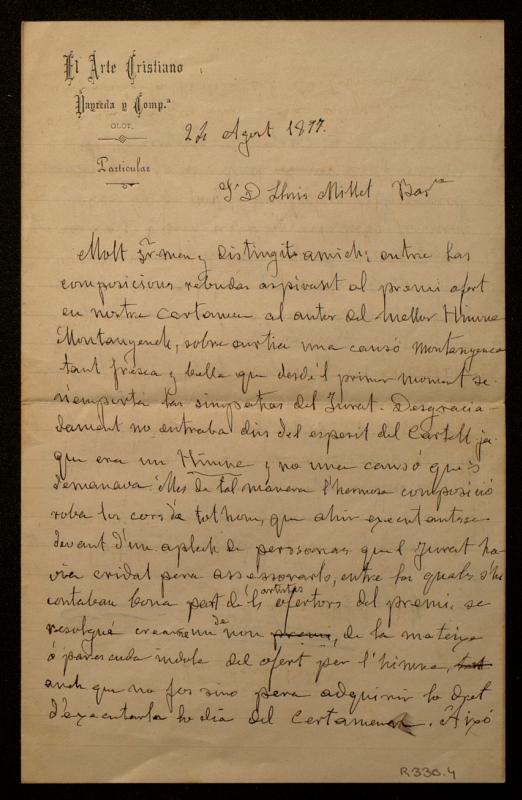 El Arte Cristiano
Vayreda y Comp.ª
OLOT.
Particular
Agost 1897.
Sr D Lluis Millet Barna
Molt Sr meu y distingit amich: entre las
composicions rebudas aspirant al premi ofert
en nostre certamen al autor del mellor Himne
Montanyench, sobre surtia una cansó montanyenca
tant fresca y bella que desde'l primer moment se
n'emportá las simpatias del Jurat. Desgracia-
dament no entraba dins del esperit del Cartell ja
que era un Himne y no una cansó que's
demanava. Mes de tal manera l'hermosa composició
roba los cors de tothom, que ahir executantse
devant d'un aplech de personas que'l Jurat ha-
via cridat pera assessorarlo, entre las quals s'hi
contaban bona part dels artistas ofertors del premi, se
resolgué crearne un de nou premi, de la mateixa
ó parescuda indole del ofert per l'himne,
anch que no fos sino pera adquirir lo dret
d'executarla lo dia del Certamen. Aixó
R330.4